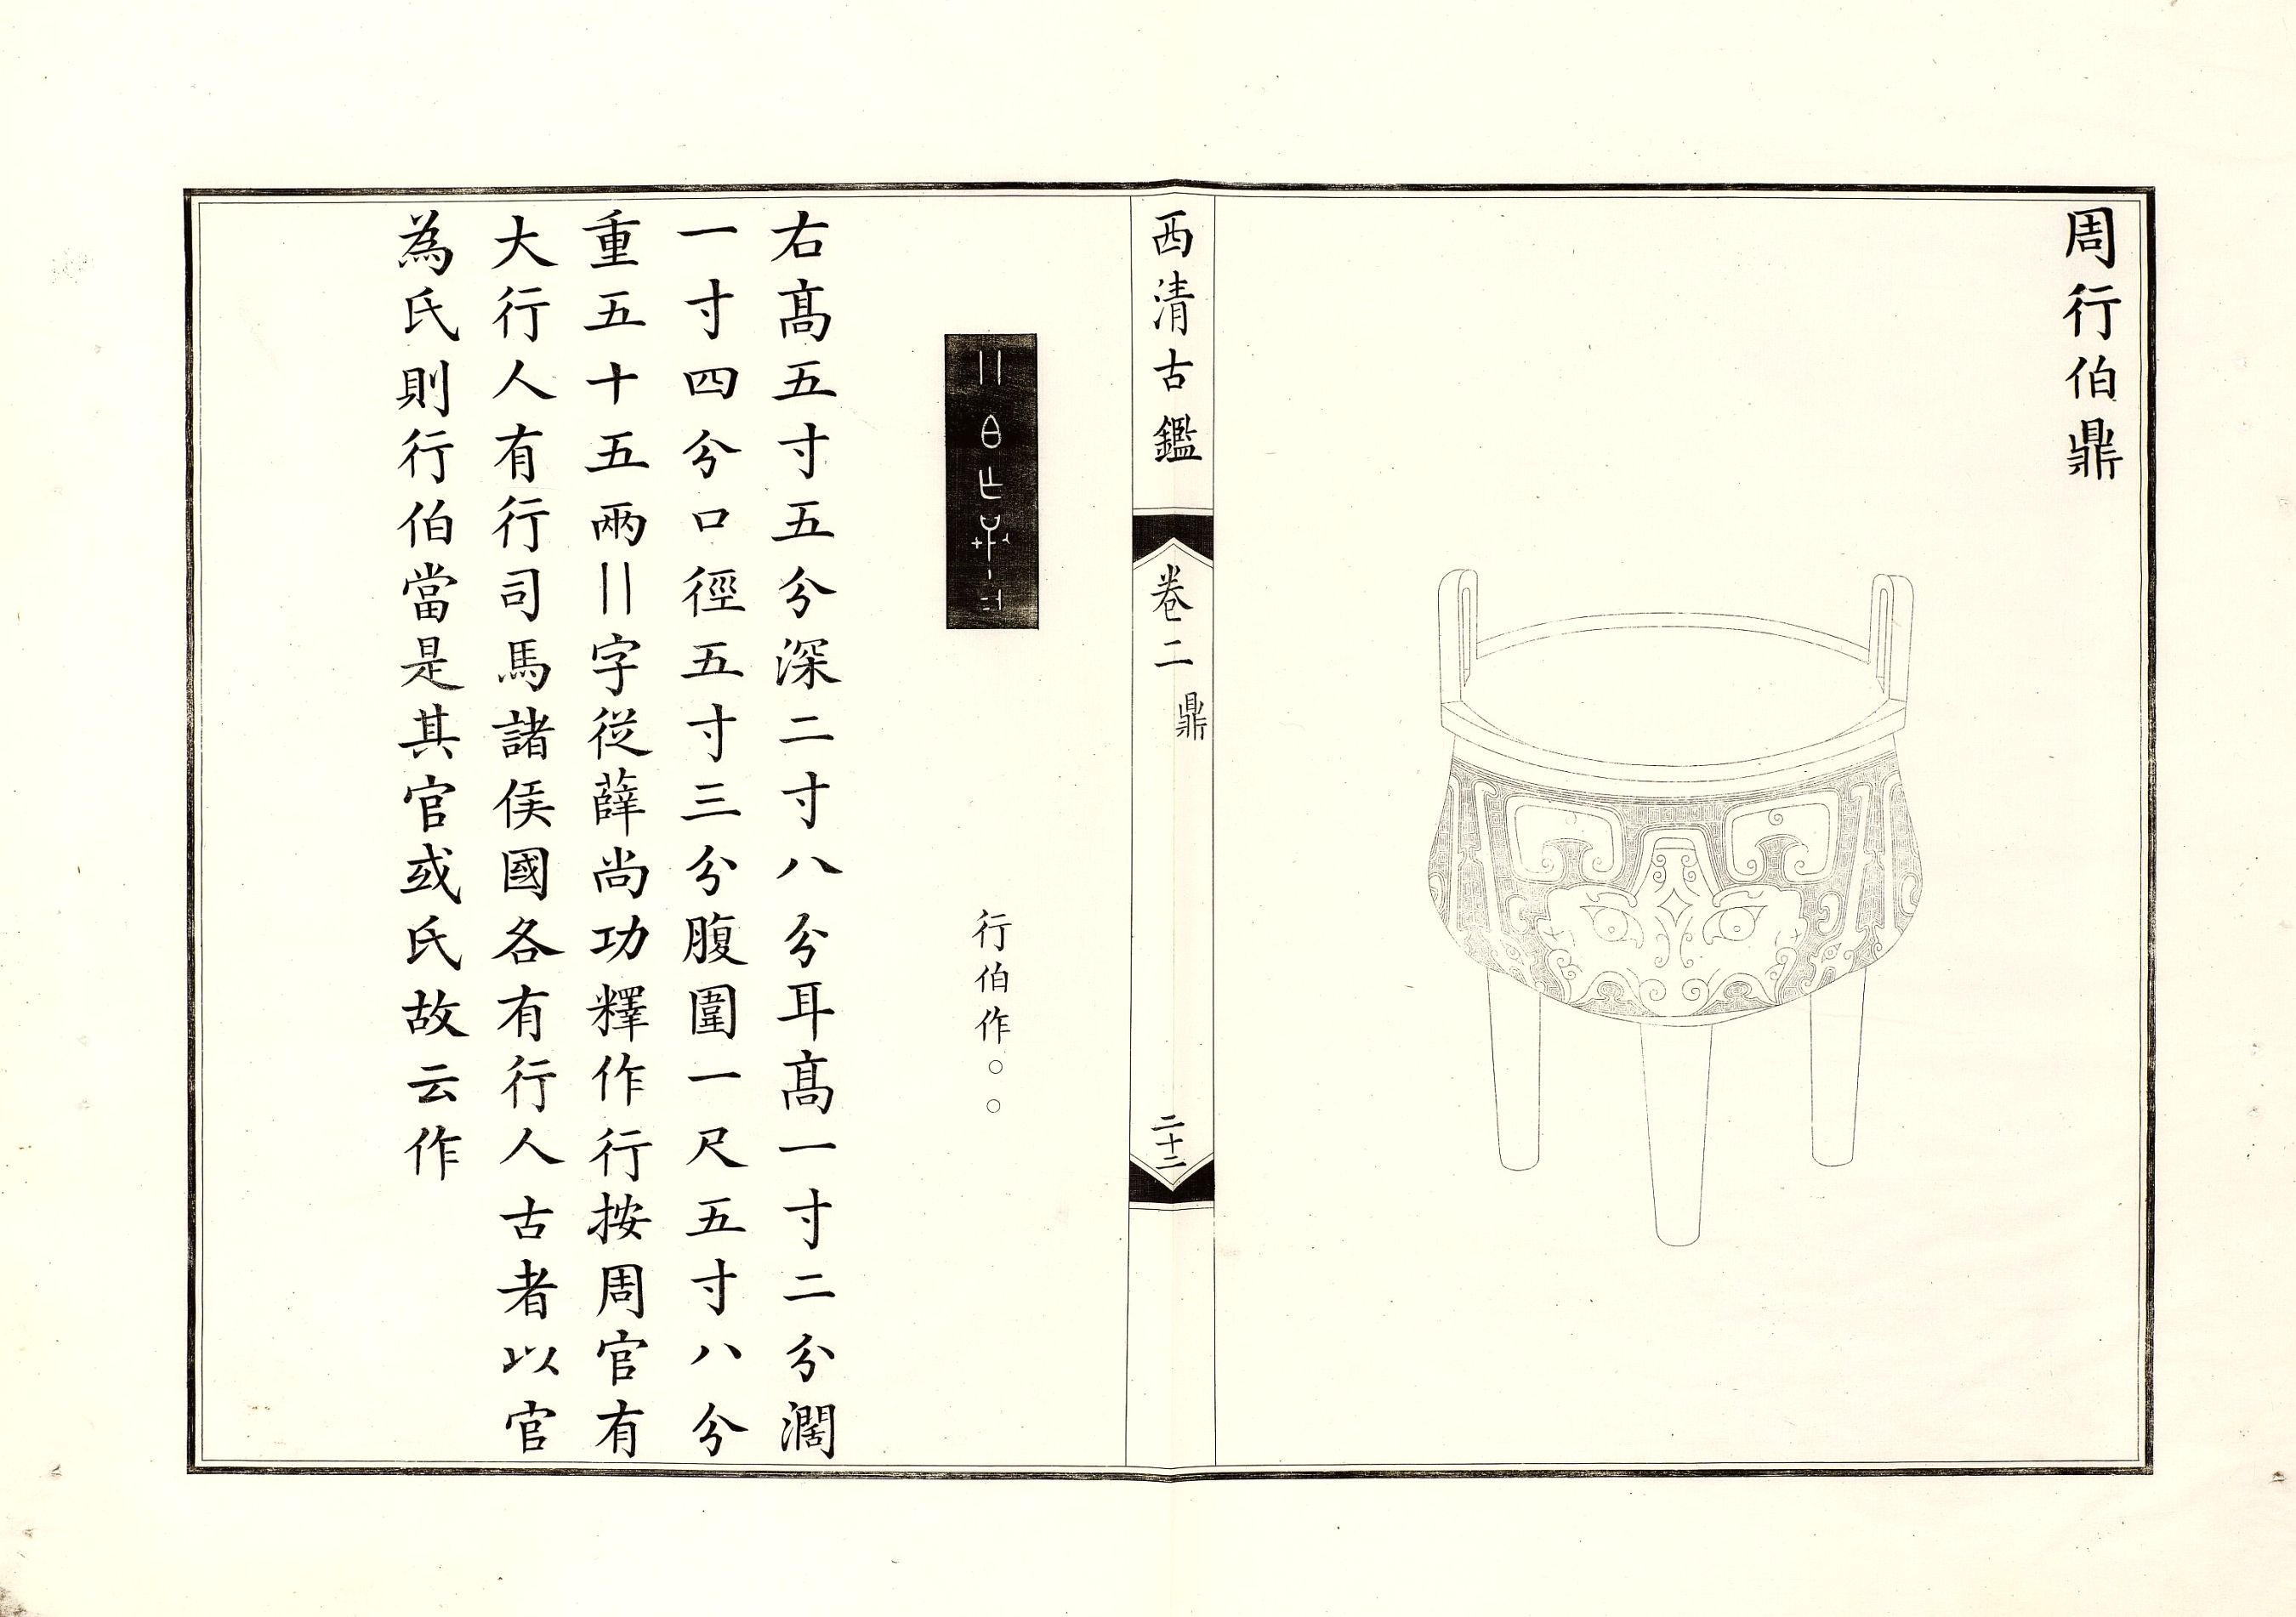 周行伯鼎
西清古鑑
卷二
鼎
二十二
行伯作○○
右高五寸五分深二寸八分耳高一寸二分濶
一寸四分口徑五寸三分腹圍一尺五寸八分
重五十五兩〢字從薛尚功釋作行按周官有
大行人有行司馬諸侯國各有行人古者以官
為氏則行伯當是其官或氏故云作